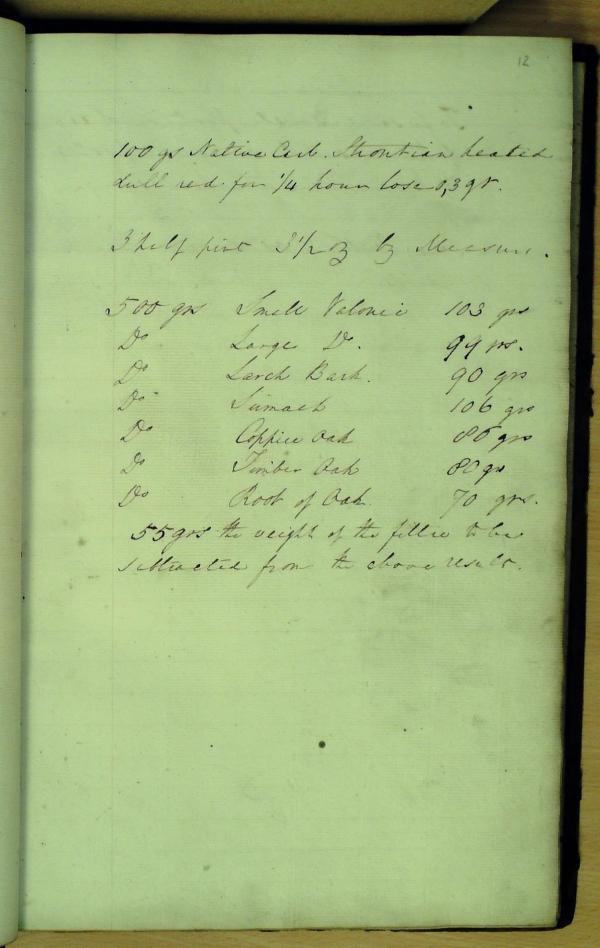 12
100 grs Native Carb. Strontian heated
dull red for 1/4 hour lose 0,3 gr.
3 half pint 3 1/2 oz by Measure.
500 grs Small Valonia 103 grs
Do Large Do. 99 grs.
Do Larch Bark. 90 grs
Do Sumach 106 grs
Do Coppice Oak 86 grs
Do Timber Oak 80 grs
Do Root of Oak 70 grs.
55 grs the weight of the filtre to be
subtracted from the above result.